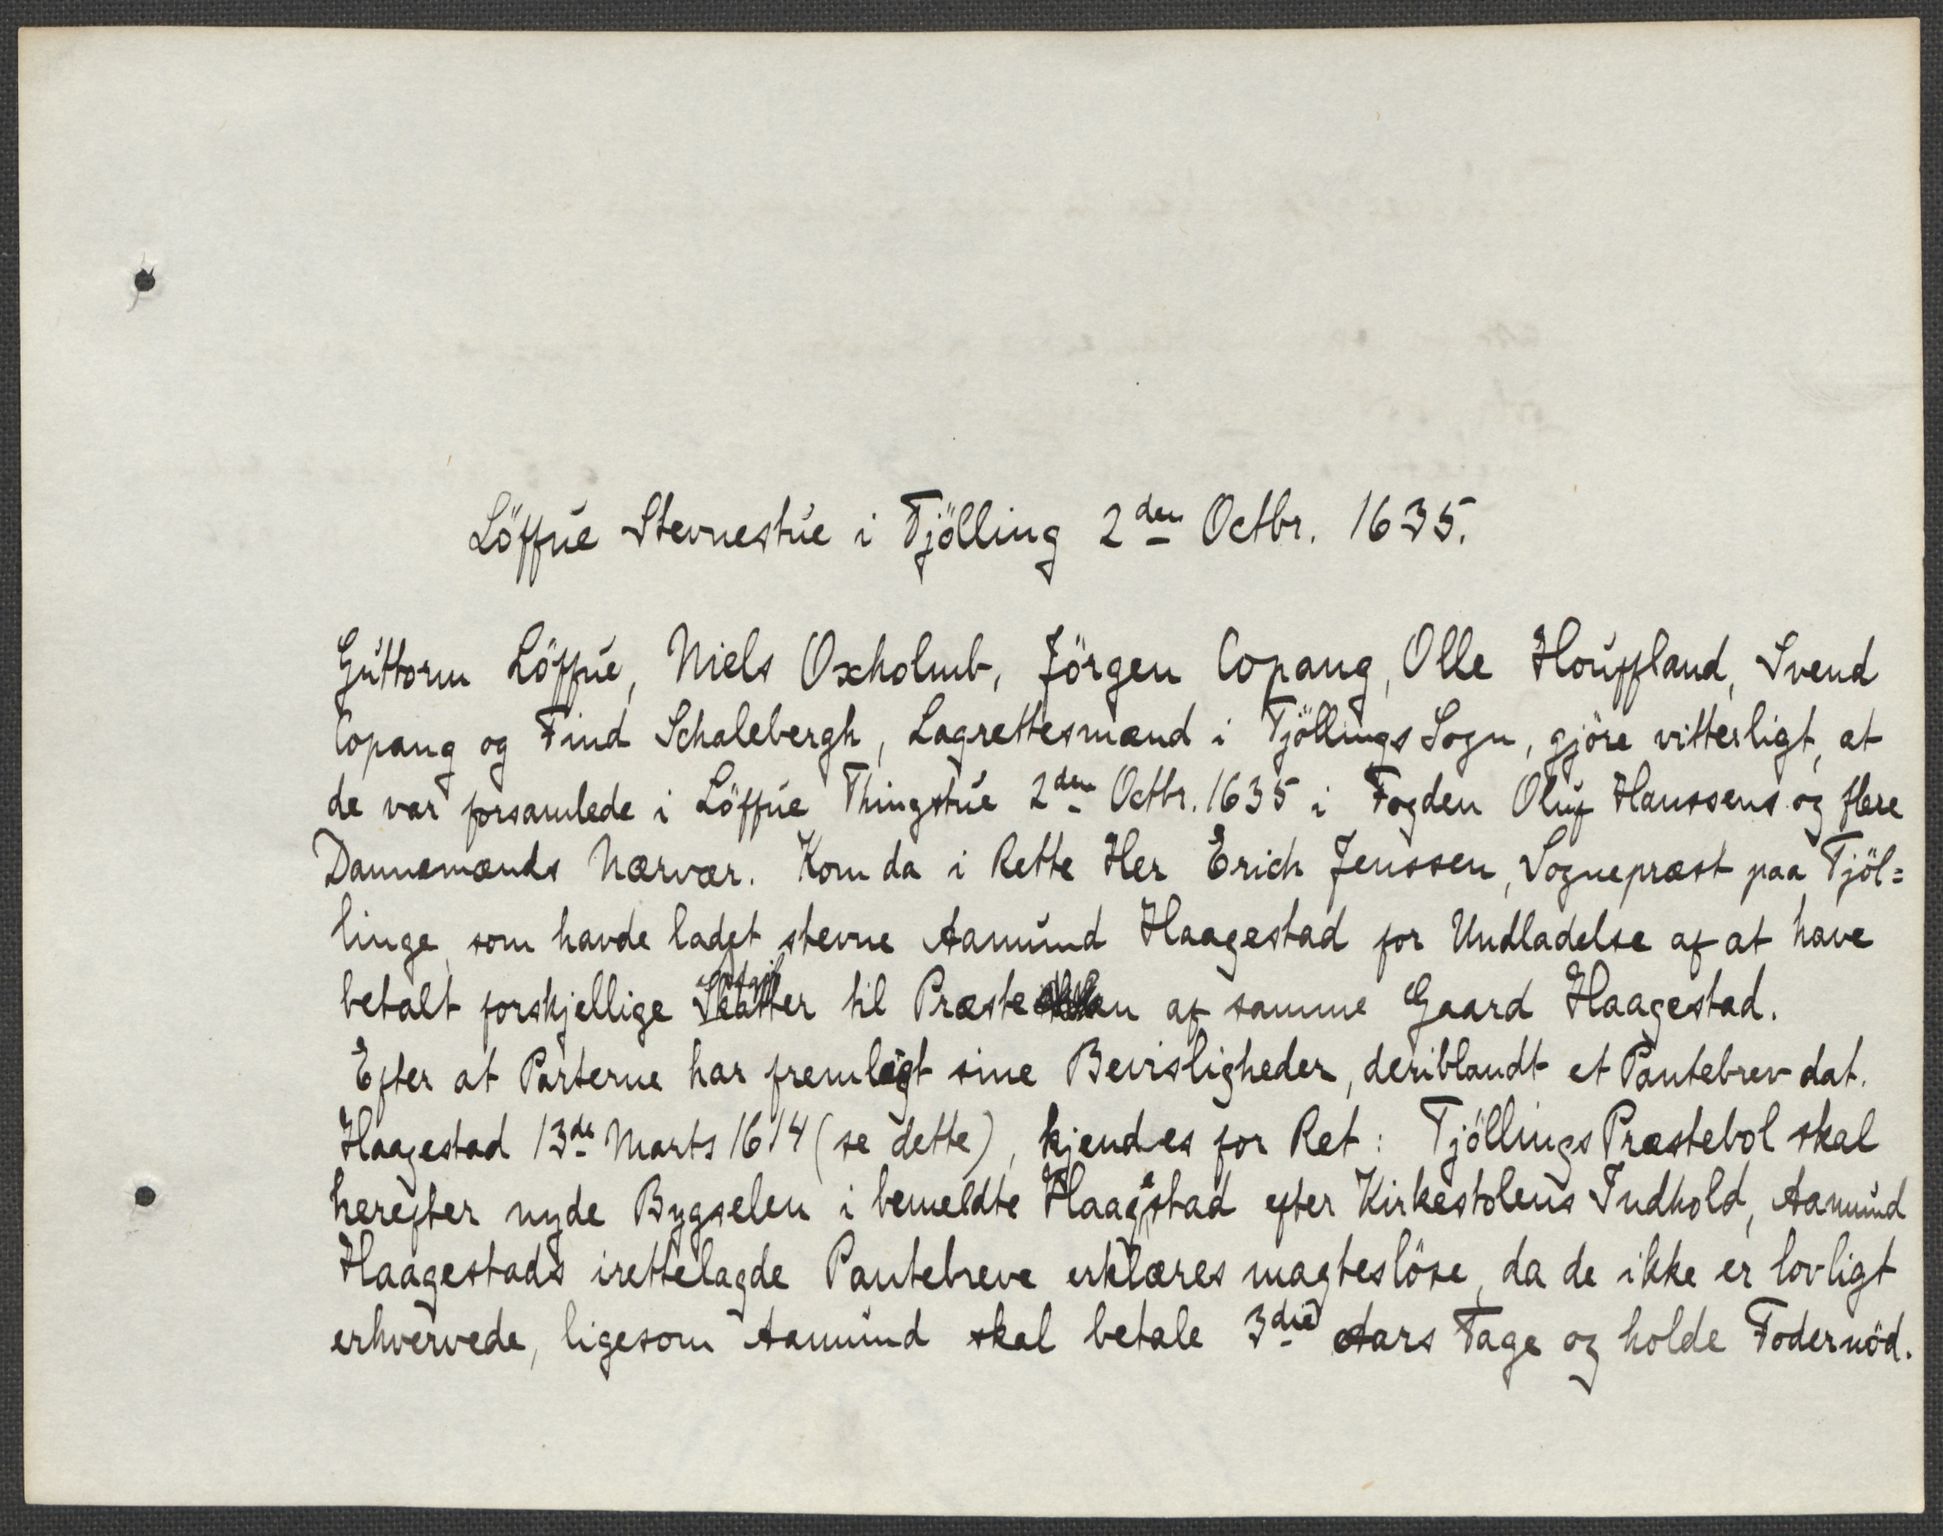 Löffue Stevnestue i Tjölling 2den Octbr. 1635.
Guttorm Löffue, Niels Oxholmb, Jörgen Copang, Olle Houffland, Svend
Copang og Find Schalebergh, Lagrettesmænd i Tjöllings Sogn, gjöre vitterligt, at
de var forsamlede i Löffue Thingstue 2den Octbr. 1635 i Fogden Oluf Hanssens og flere
Dannemænds Nærvær. Kom da i Rette Her Erich Jenssen, Sognepræst paa Tjöl=
linge, som havde ladet stevne Aamund Haagestad for Undladelse af at have
betalt forskjellige Skatter til Præsten af samme Gaard Haagestad.
Efter at Parterne har fremlagt sine Bevisligheder, deriblandt et Pantebrev dat.
Haagestad 13de Marts 1614 (se dette), kjendes for Ret: Tjöllings Præstebol skal
herefter nyde Bygselen i bemeldte Haagestad efter Kirkestolens Indhold, Aamund
Haagestads irettelagde Pantebreve erklæres magteslöse, da de ikke er lovligt
erhvervede, ligesom Aamund skal betale 3die Aars Tage og holde Fodernöd.